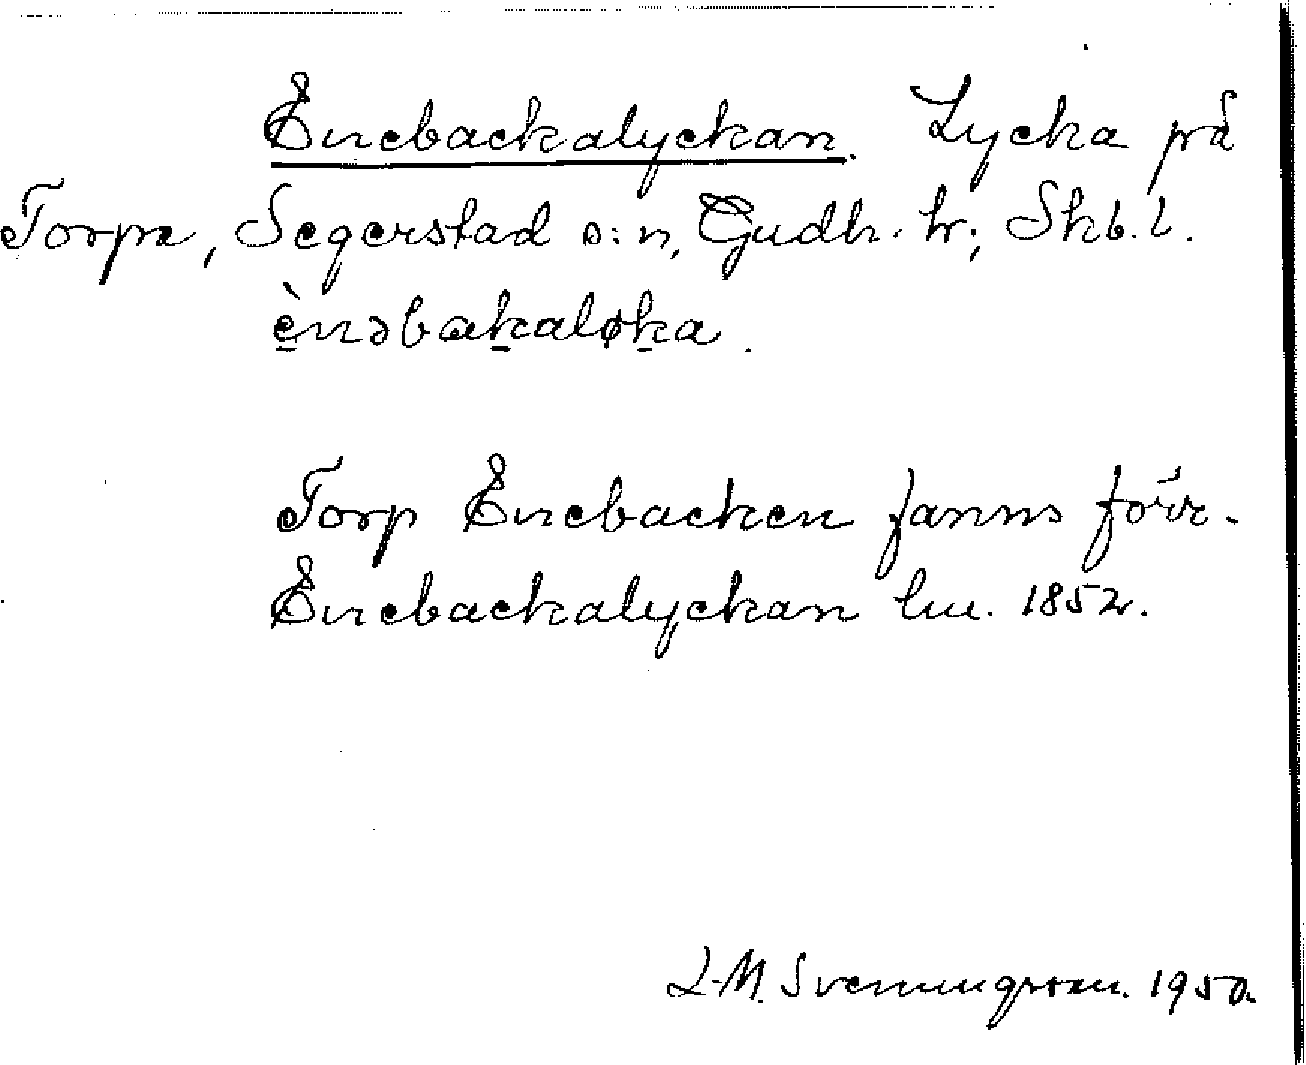 Enebackalyckan. Lycka på
Torpa, Segerstad s:n, Gudh. hr; Skb. l.
ènəbakaløka.
Torp Enebacken fanns förr.
Enebackalyckan lm. 1852.
L-M. Svenningsson. 1950.